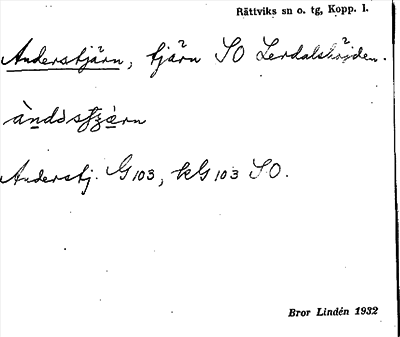 Rättviks sn o. tg, Kopp. l.
Anderstjärn, tjärn SO Lerdalshöjden.
Anderstj. G 103, kG 103 SO.
Bror Lindén 1932